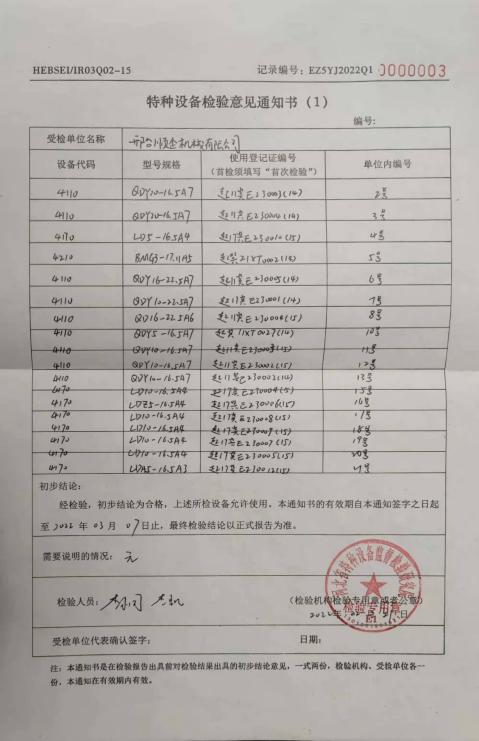 HEBSEI/IR03Q02-15 记录编号：EZ5YJ2022Q1 0000003
特种设备检验意见通知书（1）
编号：
受检单位名称
设备代码 型号规格 使用登记证编号（首检须填写“首次检验”） 单位内编号
4110 QDY20-16.5A7 起11冀E23003(14) 2号
4110 QDY20-16.5A7 3号
4170 LD5-16.5A4 起17冀E230010(15) 4号
4210 BMG3-17.11A5 5号
4110 QDY16-22.5A7 起11冀E23005(14) 6号
4110 QDY10-22.5A7 起11冀E23001(14) 7号
4110 QD16-22.5A6 8号
4110 QDY5-16.5A7 10号
4110 QDY10-16.5A7 11号
4110 QDY10-16.5A7 12号
4110 QDY10-16.5A7 起11冀E23002(14) 13号
4170 LD10-16.5A4 15号
4170 LDZ5-16.5A4 起17冀E23006(15) 16号
4170 LD10-16.5A4 起17冀E23008(15) 17号
4170 LD10-16.5A4 起17冀E23009(15) 18号
4170 LD10-16.5A4 起17冀E23007(15) 19号
4170 LD10-16.5A4 起17冀E23005(15) 20号
4170 LDA5-16.5A3 起17冀E230012(15) 21号
初步结论：
经检验，初步结论为合格，上述所检设备允许使用。本通知书的有效期自本通知签字之日起
至2022年03月07日止，最终检验结论以正式报告为准。
需要说明的情况：无
检验人员：
（检验机构检验专用章或者公章）
检验专用章
E1
受检单位代表确认签字： 日期：
注：本通知书是在检验报告出具前对检验结果出具的初步结论意见，一式两份，检验机构、受检单位各一
份，本通知在有效期内有效。